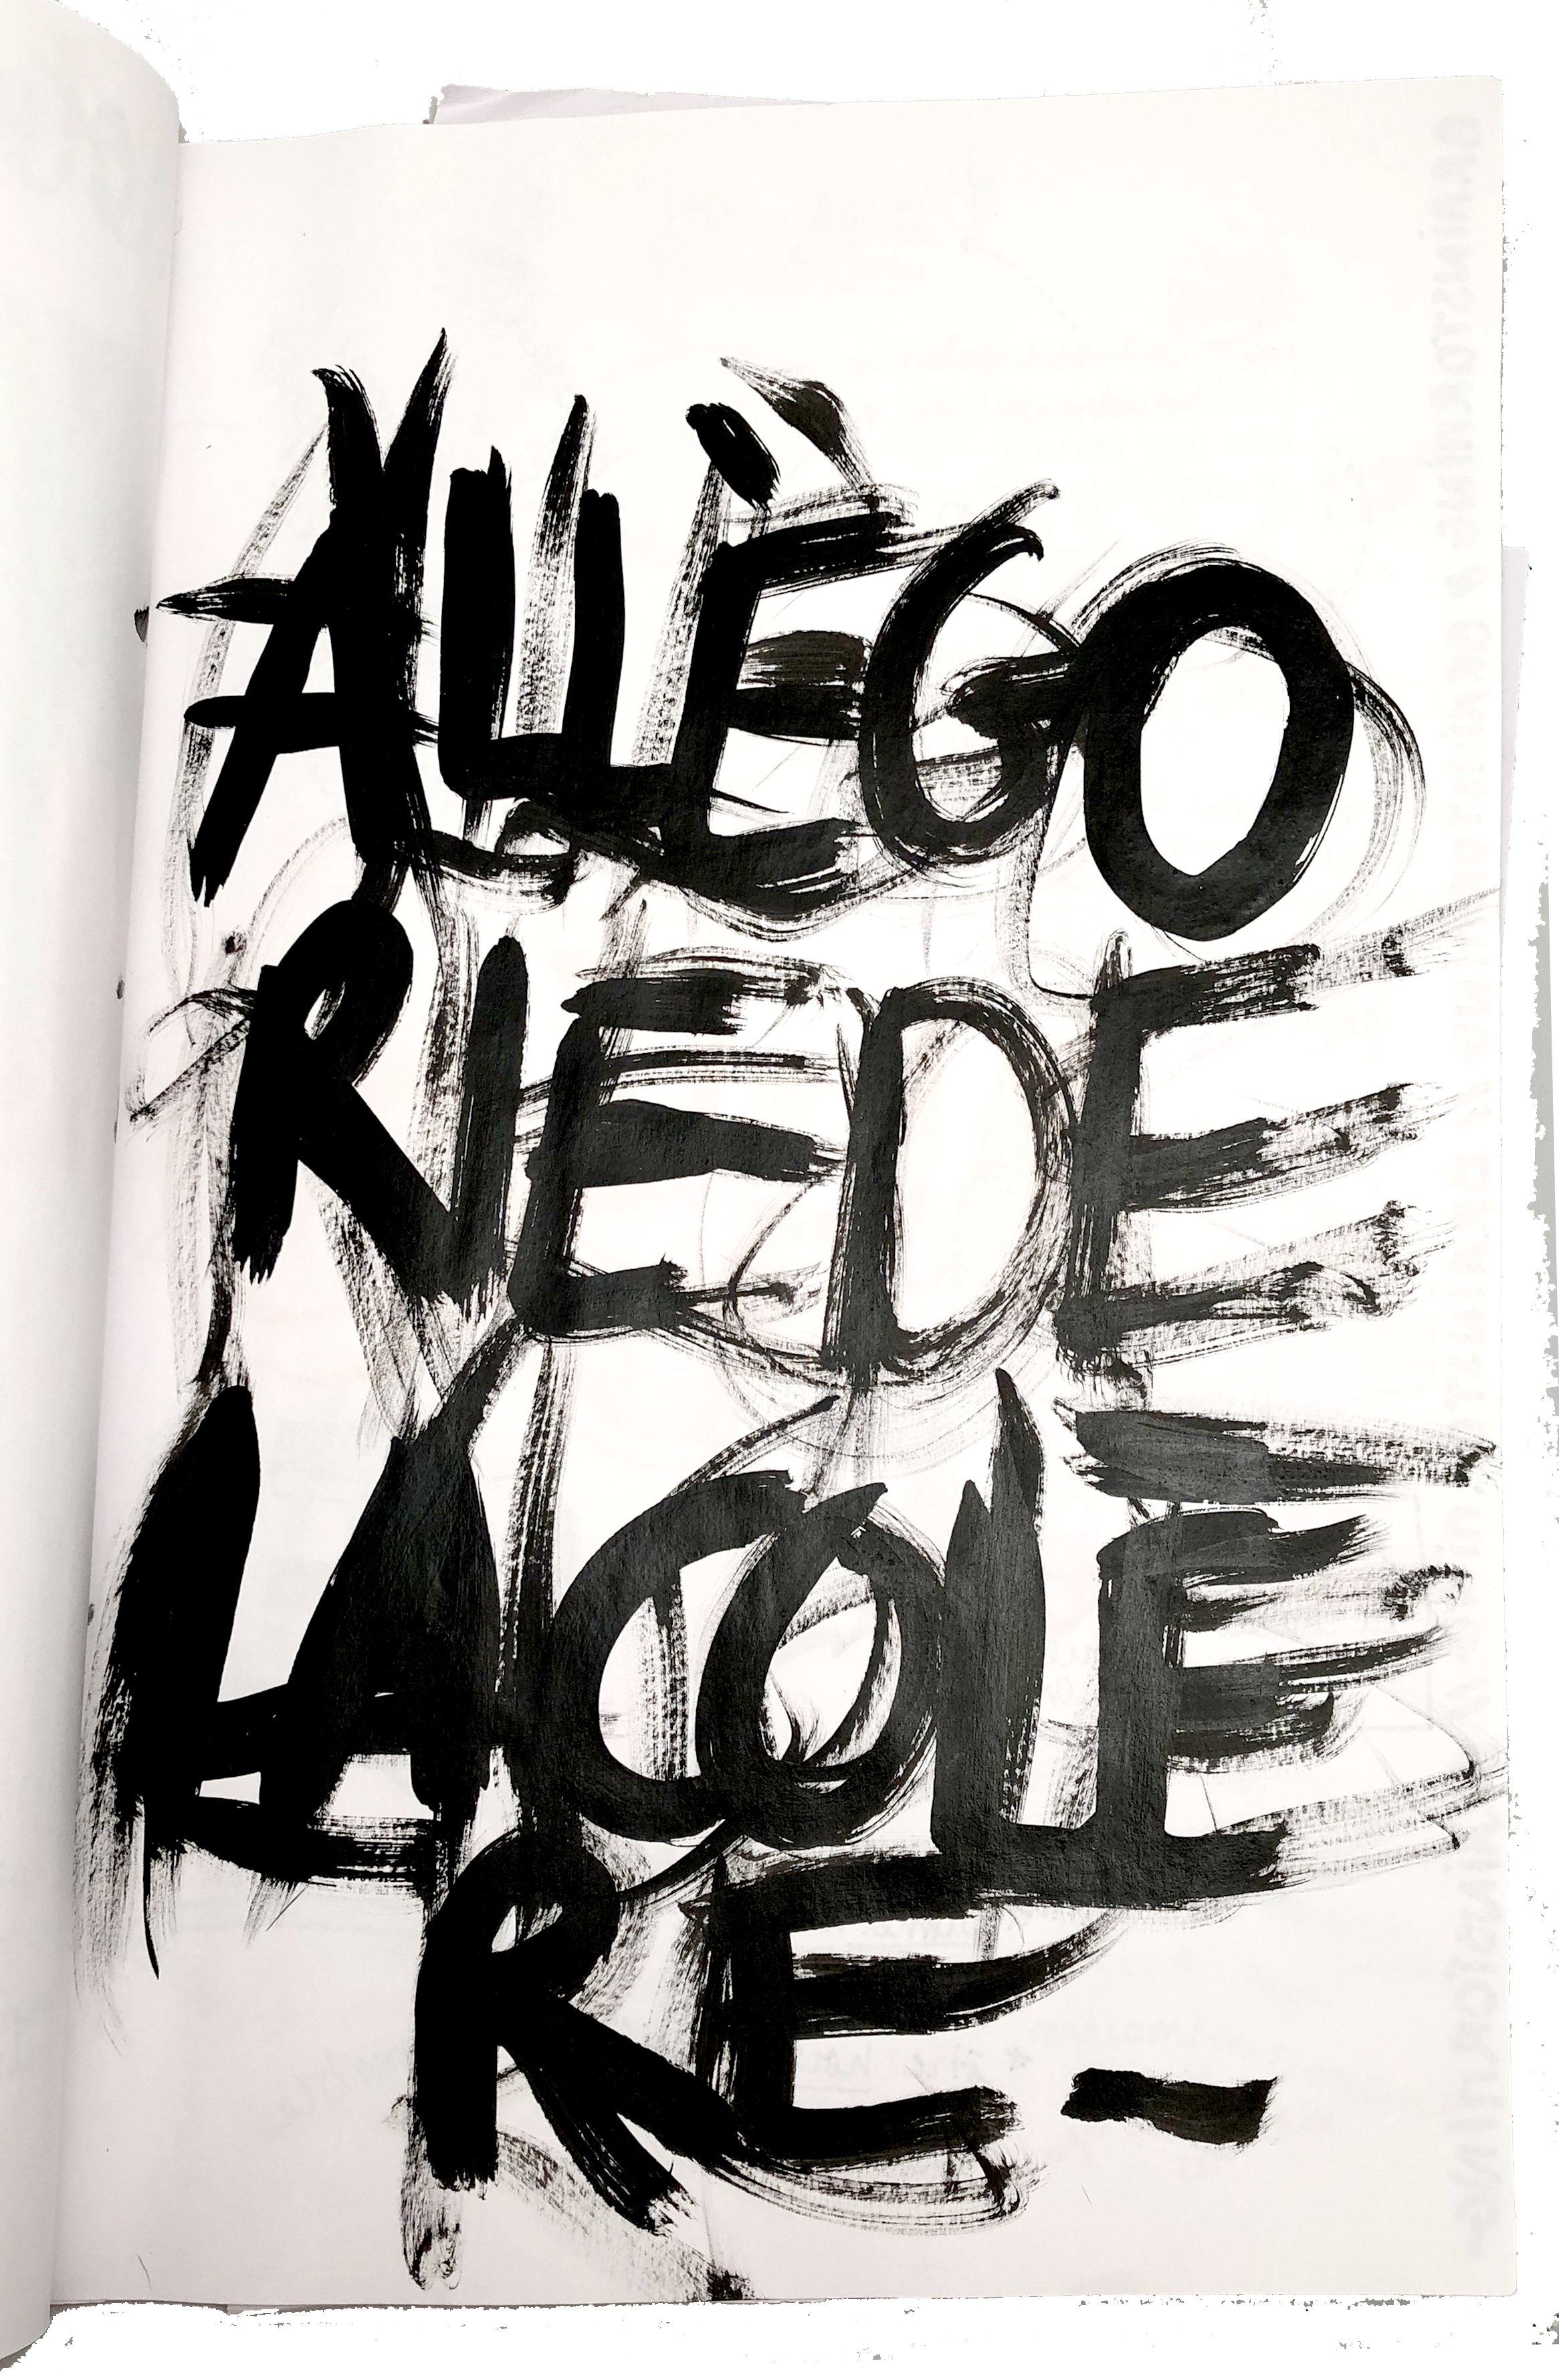 ALLÈGO
RIE DE
LA COLE
RE-